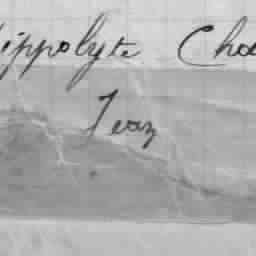 Hippolyte Cha
Jean